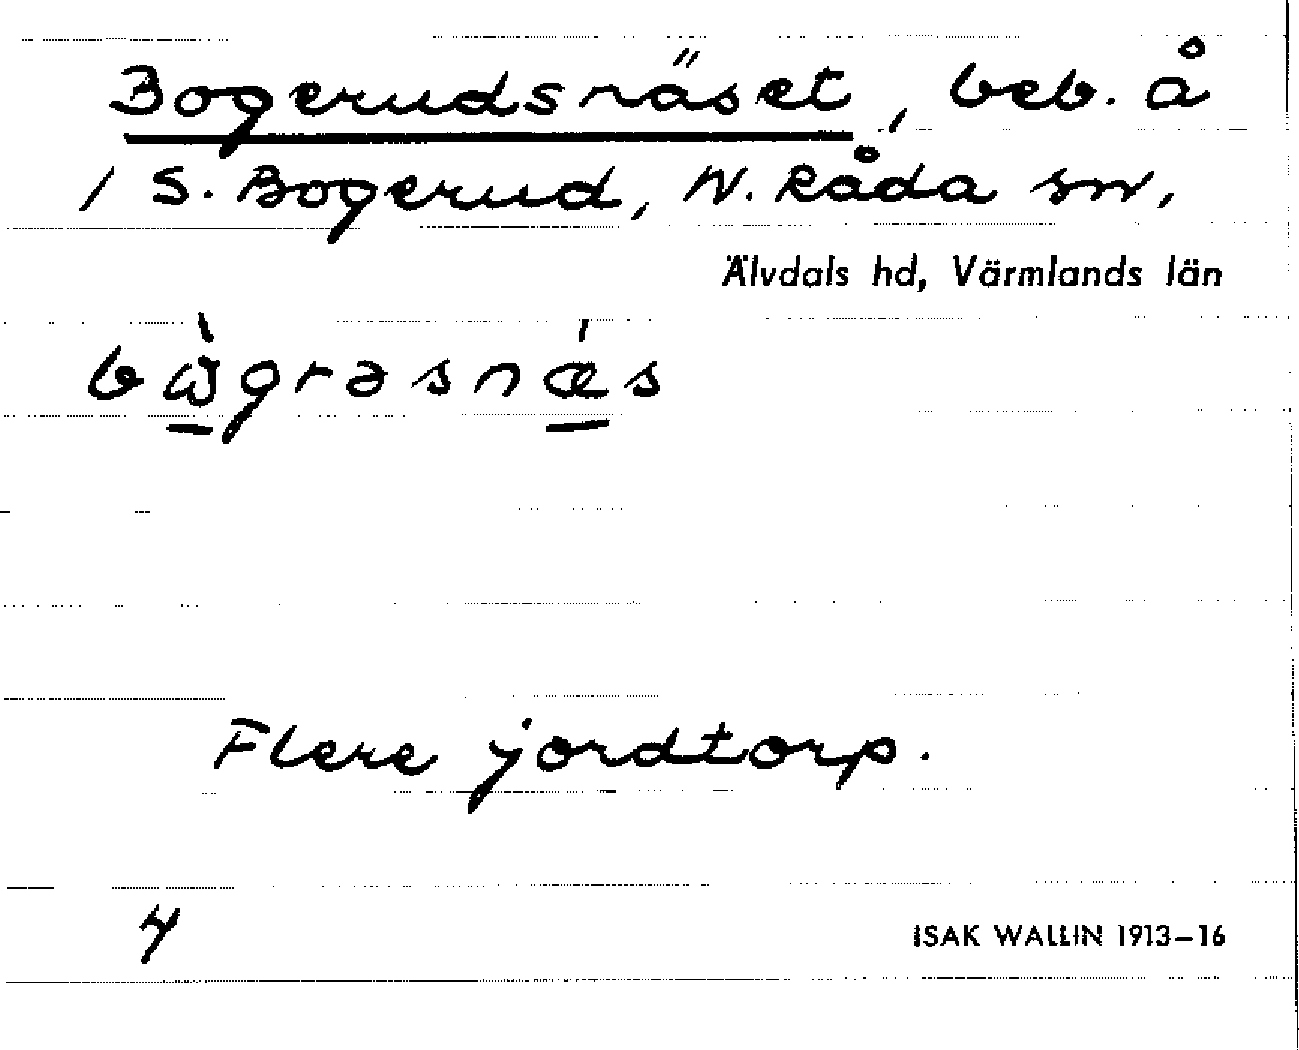 Bogerudsnäset, beb. å
/ S. Bogerud, N. Råda sn,
Älvdals hd, Värmlands län
Flere jordtorp.
4
ISAK WALLIN 1913–16